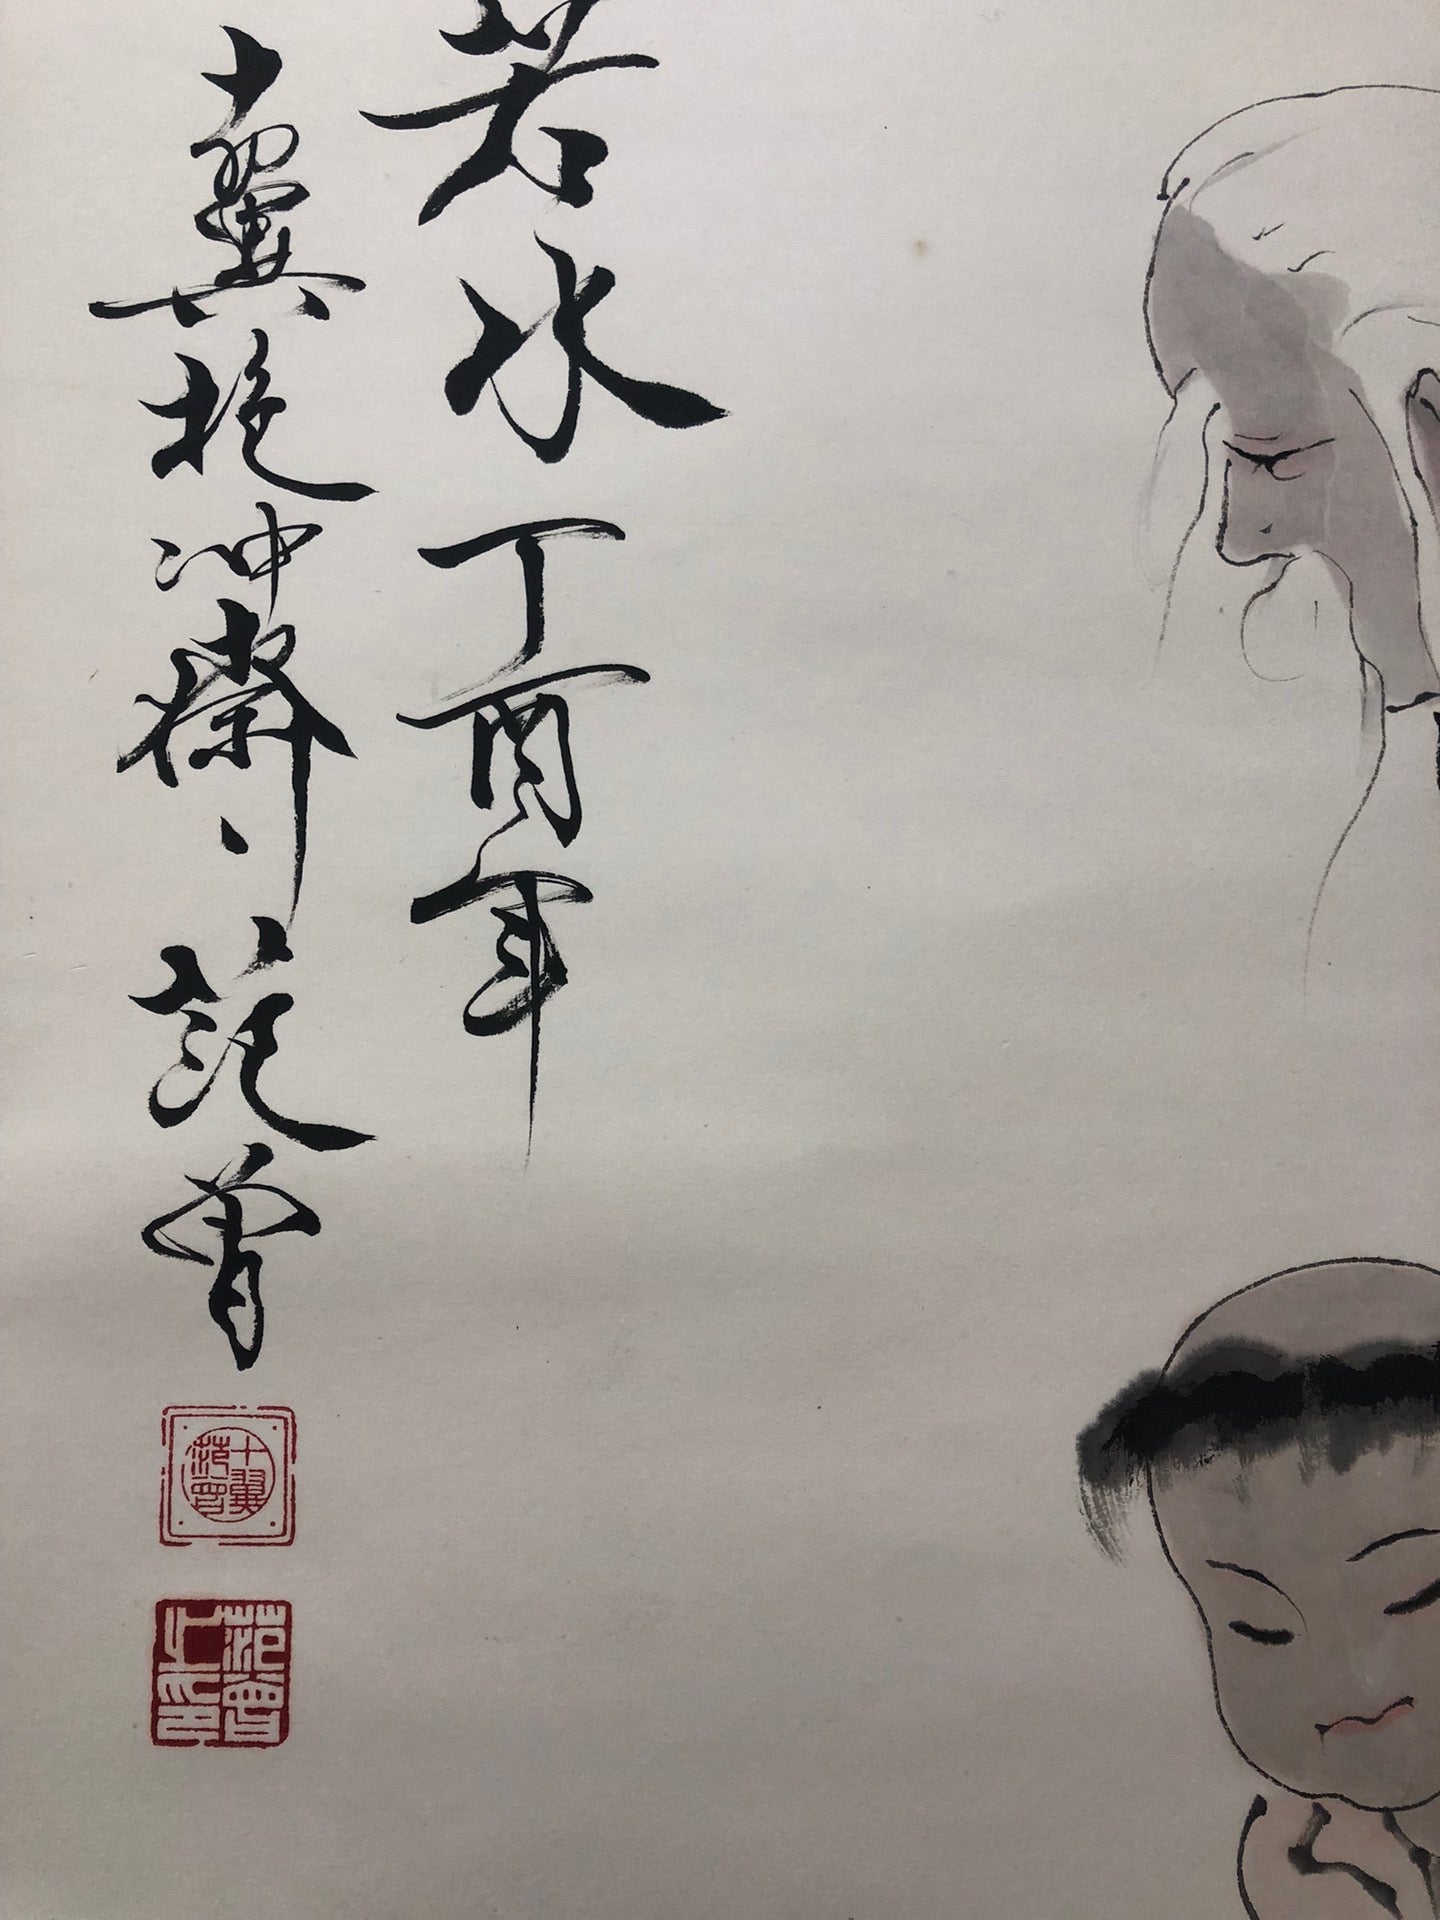 若水丁酉年
十翼抱冲斋范曾
十翼范曾
范曾之印